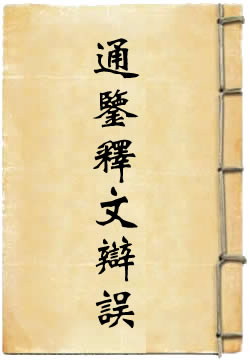 通鑒釋文辯誤